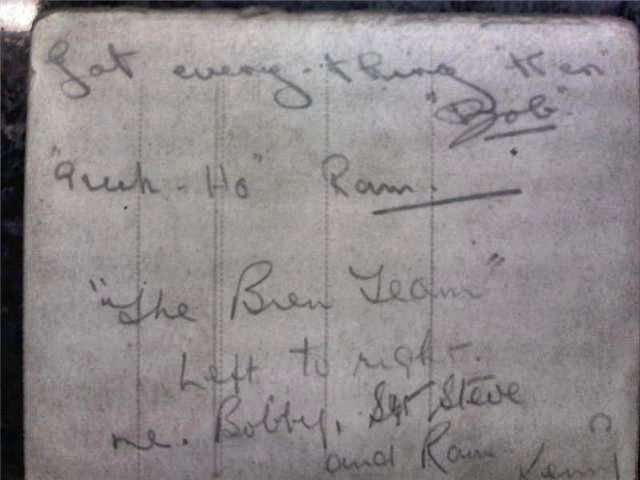 Got every-thing Ken
"Bob"
Ho" Ram.
"The Bren Team"
Left to right.
me. Bobby, Sgt Steve
and Ram